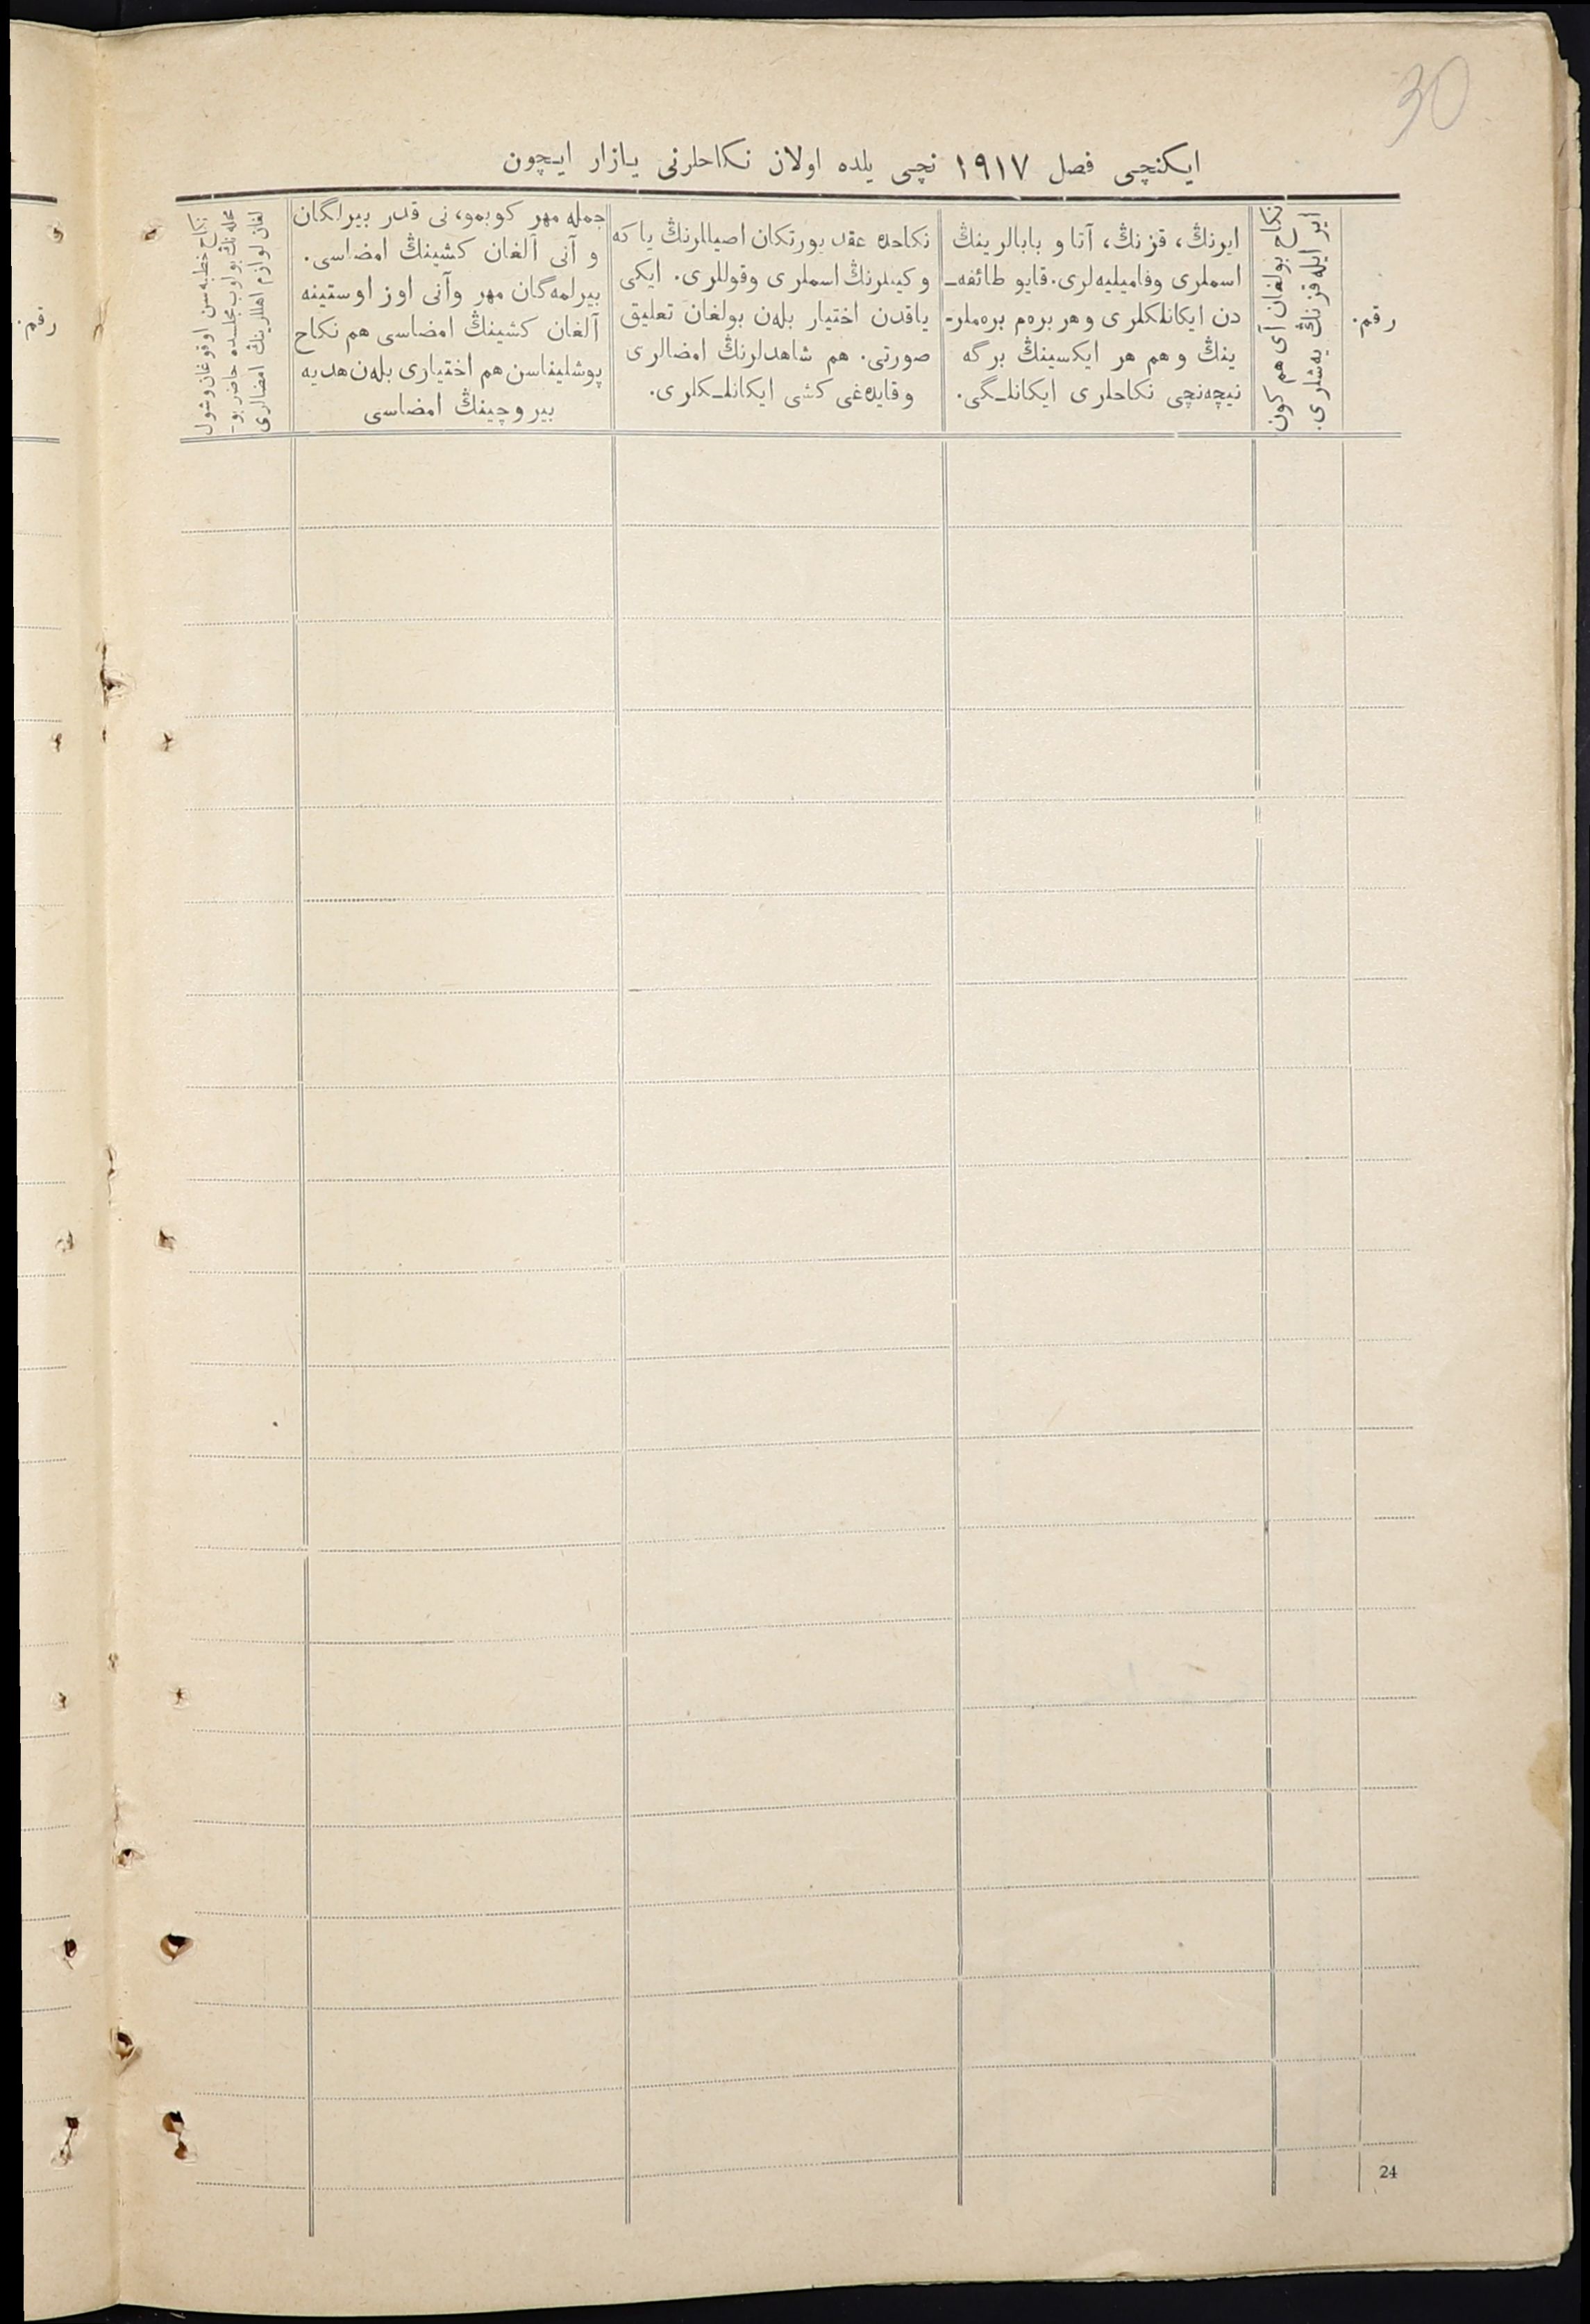 30
ایکنچی فصل ١٩١٧ نچی یلده اولان نکاحلرنی یازار ایچون
رقم.
نکاح بولغان آی هم کون
ایر ایله قزنڭ یه‌شلری.
ایرنڭ، قزنڭ، آتا و بابالرینڭ
اسملری وفامیلیه‌لری. قایو طائفه‌ـ
دن ایکانلکلری وهر بره‌م بره‌ملر-
ینڭ وهم هر ایکسینڭ برگه
نیچه‌نچی نکاحلری ایکانلـگی.
نکاحده عقد یورتکان اصیللرنڭ یا که
وکیللرنڭ اسملری وقوللری. ایکی
یاقدن اختیار بله‌ن بولغان تعلیق
صورتی. هم شاهدلرنڭ امضالری
وقایده‌غی کشی ایکانلـکلری.
جمله مهر کوبمو، نی قدر بیرلگان
و آنی آلغان کشینڭ امضاسی.
بیرلمه‌گان مهر وآنی اوز اوستینه
آلغان کشینڭ امضاسی هم نکاح
پوشلیناسن هم اختیاری بله‌ن هدیه
بیروچینڭ امضاسی
نکاح خطبه‌سن اوقوغان وشول
محله‌نڭ بولوب مجلسده حاضر بو-
لغان لوازم اهللرینڭ امضالری
رقم.
24